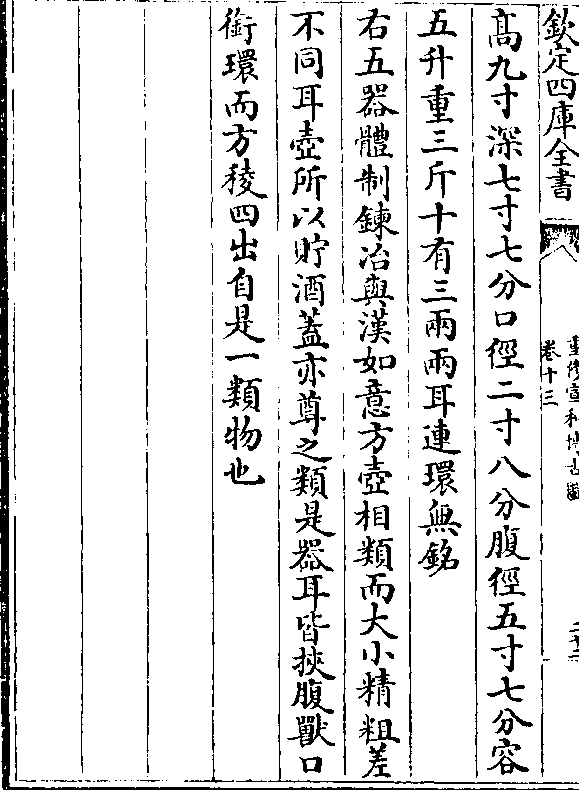 欽定四庫全書
重修宣和博古圖
卷十三
高九寸深七寸七分口徑二寸八分腹徑五寸七分容
五升重三斤十有三兩兩耳連環無銘
右五器體制鍊冶與漢如意方壺相類而大小精粗差
不同耳壺所以貯酒蓋亦尊之類是器耳皆挾腹獸口
銜環而方稜四出自是一類物也